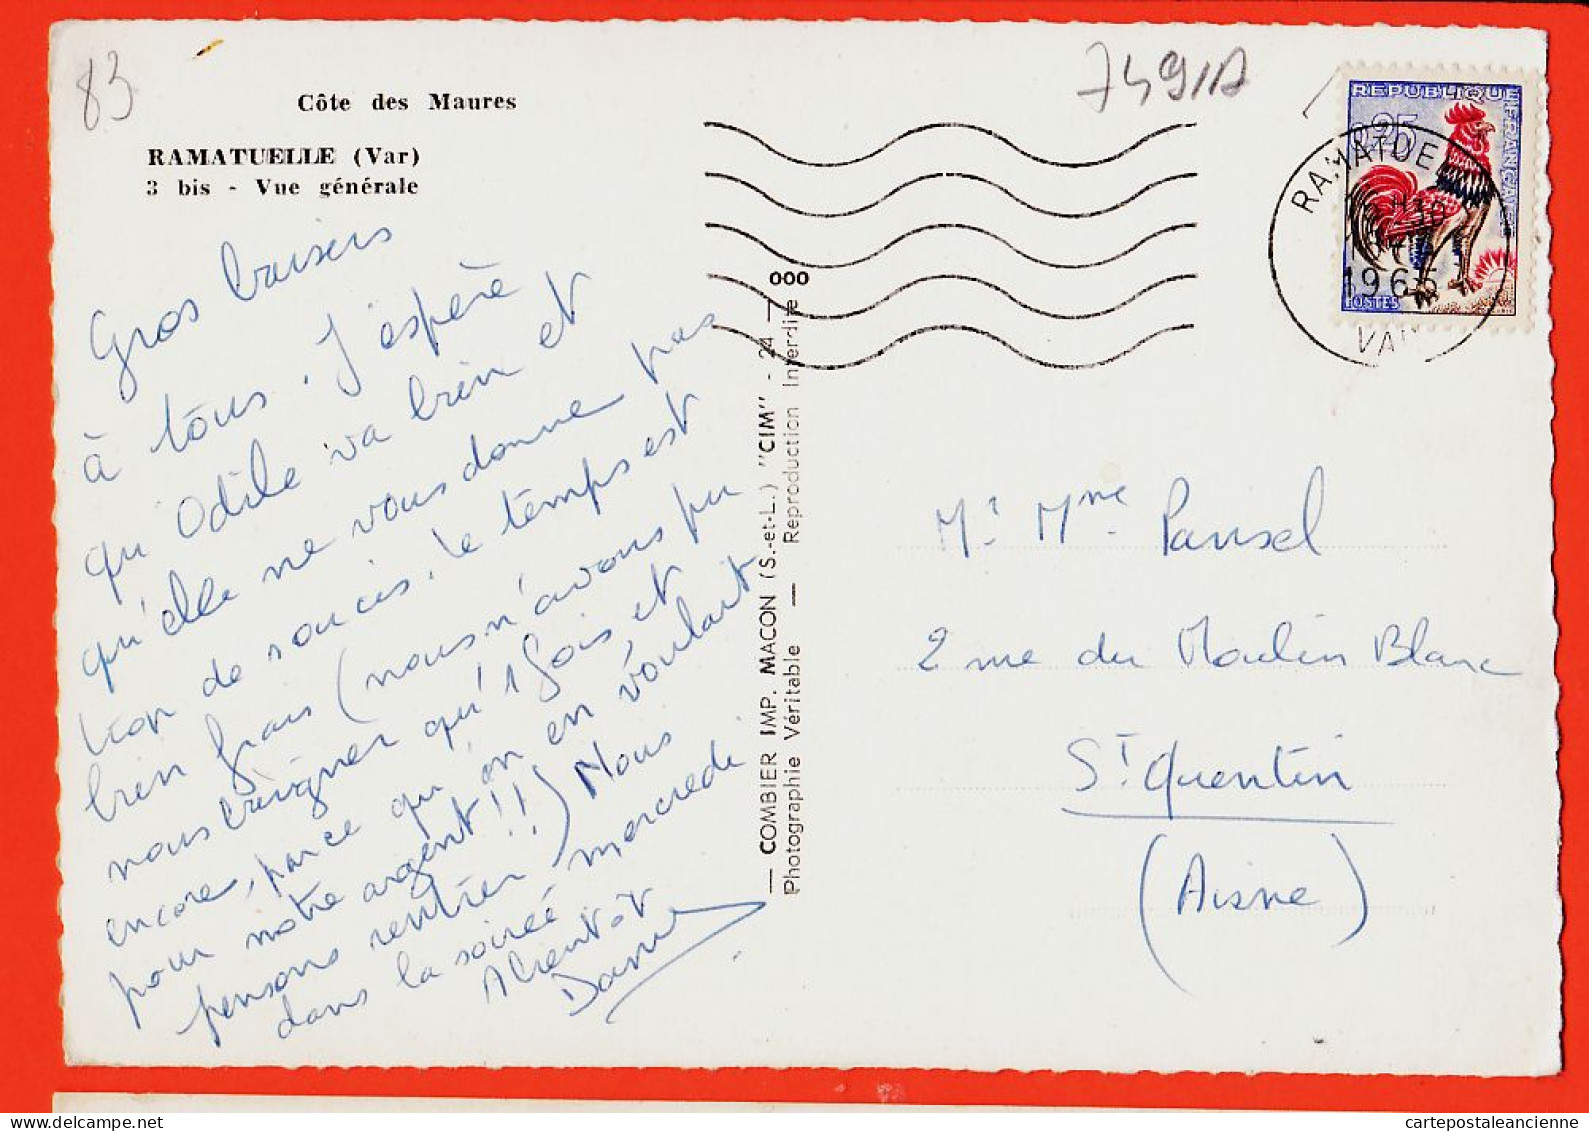 83
7491A
Côte des Maures
RAMATUELLE (Var)
3 bis - Vue générale
Gros baisers
à tous. J'espère
qu'Odile va bien et
qu'elle ne vous donne pas
trop de soucis. Le temps est
bien frais (nous n'avons pu
nous baigner qu'1 fois et
encore, parce qu'on en voulait
pour notre argent!!) Nous
pensons rentrer mercredi
dans la soirée.
A bientôt
COMBIER IMP. MACON (S.-et-L.) "CIM" - 24 -
Photographie Véritable — Reproduction Interdite
000
REPUBLIQUE FRANÇAISE
0,25
POSTES
RAMATUELLE
1965
VAR
Mr Mme Pansel
2 rue du Moulin Blanc
St Quentin
(Aisne)
cartepostaleancienne